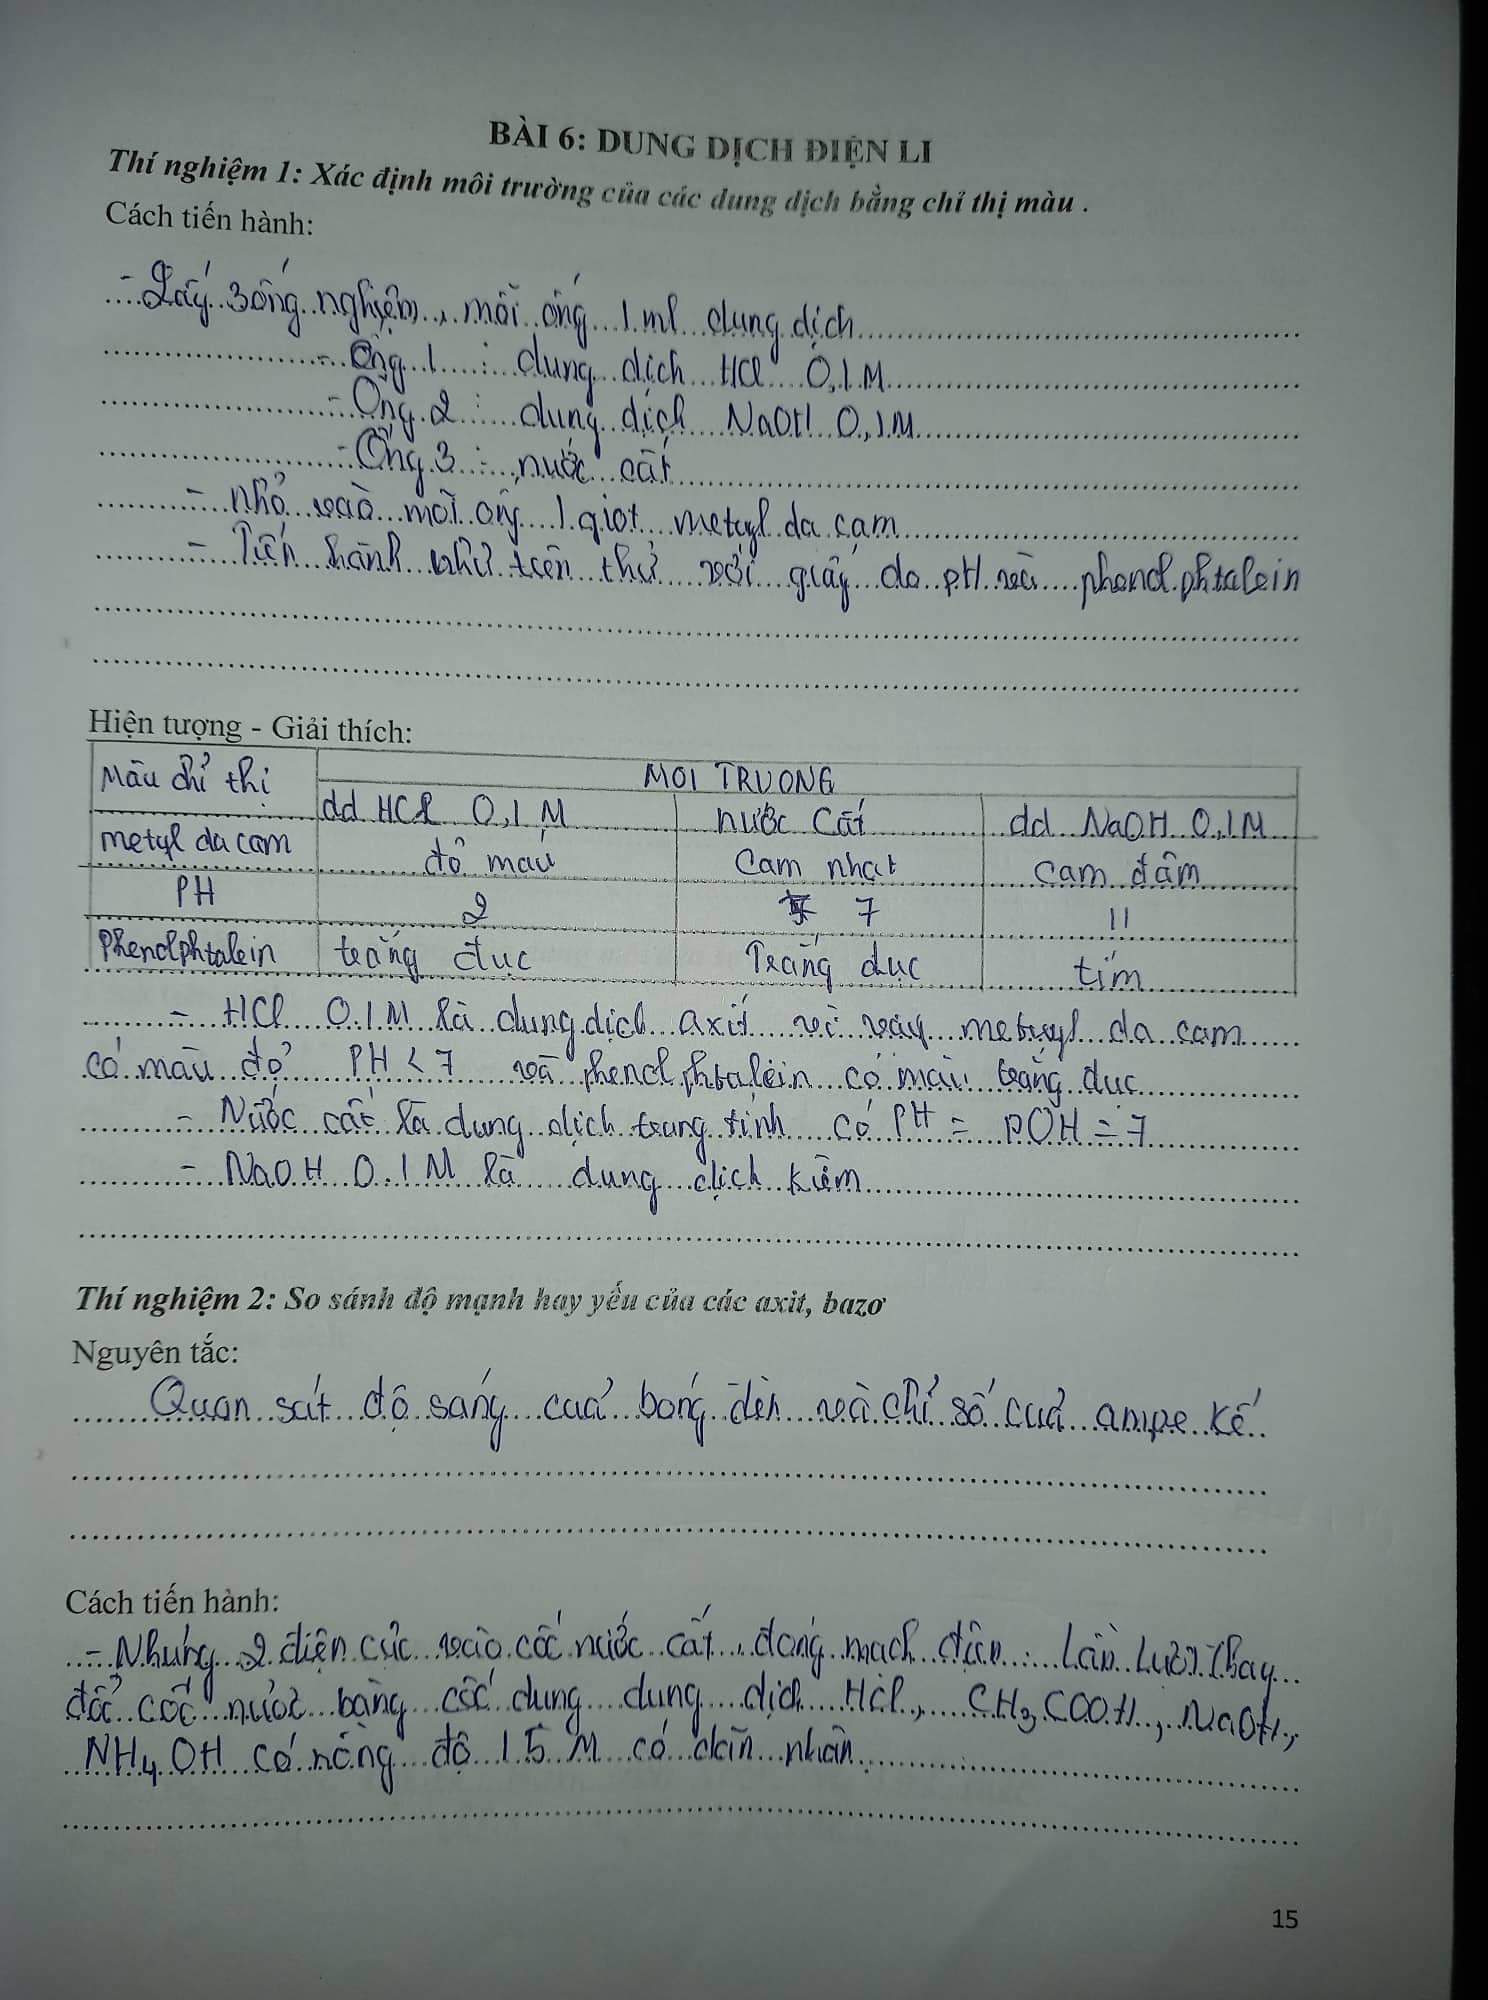 BÀI 6: DUNG DỊCH ĐIỆN LI
Thí nghiệm 1: Xác định môi trường của các dung dịch bằng chỉ thị màu .
Cách tiến hành:
- Lấy 3 ống nghiệm, mỗi ống 1 ml dung dịch
- Ống 1 : dung dịch HCl 0,1M
- Ống 2 : dung dịch NaOH 0,1M
- Ống 3 : nước cất
- nhỏ vào mỗi ống 1 giọt metyl da cam
- Tiến hành như trên thử với giấy đo pH và phenolphtalein
Hiện tượng - Giải thích:
Màu chỉ thị MOI TRUONG
dd HCl 0,1M nước Cất dd NaOH 0,1M
metyl da cam đỏ máu Cam nhạt cam đậm
PH 2 7 11
Phenolphtalein trắng đục Trắng đục tím
- HCl 0.1M là dung dịch axit vì vậy metuyl da cam
có màu đỏ PH < 7 và phenolphtalein có màu trắng đục
- Nước cất là dung dịch trung tính có PH = POH = 7
- NaOH 0.1M là dung dịch kiềm
Thí nghiệm 2: So sánh độ mạnh hay yếu của các axit, bazơ
Nguyên tắc:
Quan sát độ sáng của bóng đèn và chỉ số của ampe kế
Cách tiến hành:
- Nhúng 2 điện cực vào cốc nước cất, đóng mạch điện. Lần lượt thay
đổi cốc nước bằng cốc dung dung dịch HCl, CH3COOH, NaOH,
NH4OH có nồng độ 15 M có dãn nhãn
15